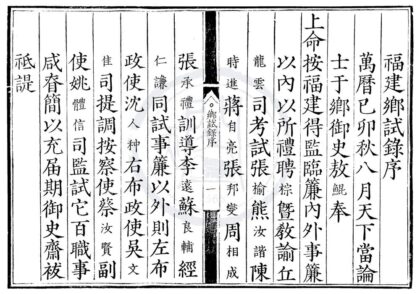 福建鄉試錄序
萬曆己卯秋八月天下當論
士于鄉御史敖鯤奉
上命按福建得監臨簾內外事簾
以內以所禮聘棕曁敎諭丘
龍雲司考試張楡熊汝諧陳
時進蔣自亮張邦變周相成
鄉試錄序
一
張承禮訓導李遠蘇良輔經
仁謙同試事簾以外則左布
政使沈人种右布政使吳文
佳司提調按察使蔡汝賢副
使姚體信司監試它百職事
咸眘簡以充届期御史齋祓
祗諟